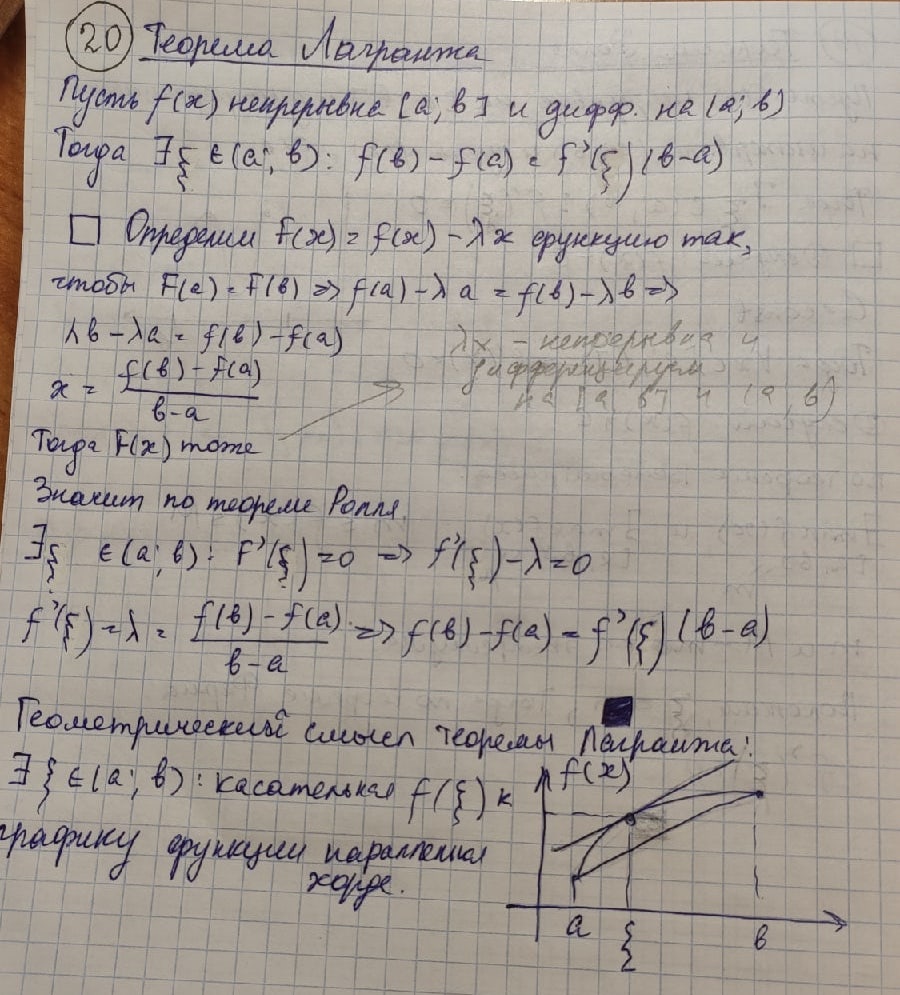 20 Теорема Лагранжа
Пусть f(x) непрерывна [a; b] и дифф. на (a; b)
Тогда ∃ξ ∈ (a; b): f(b) - f(a) = f'(ξ)(b-a)
□ Определим F(x) = f(x) - λx функцию так,
чтобы F(a) = F(b) => f(a) - λa = f(b) - λb =>
λb - λa = f(b) - f(a)
λ = (f(b) - f(a)) / (b-a)
λx - непрерывна и
дифференцируем
на [a, b] и (a, b)
Тогда F(x) тоже
Значит по теореме Ролля.
∃ξ ∈ (a; b): F'(ξ) = 0 => f'(ξ) - λ = 0
f'(ξ) = λ = (f(b) - f(a)) / (b-a) => f(b) - f(a) = f'(ξ)(b-a)
■
Геометрический смысл теоремы Лагранжа:
∃ξ ∈ (a; b): касательная f(ξ) к
графику функции параллельна
хорде.
f(x)
a ξ b